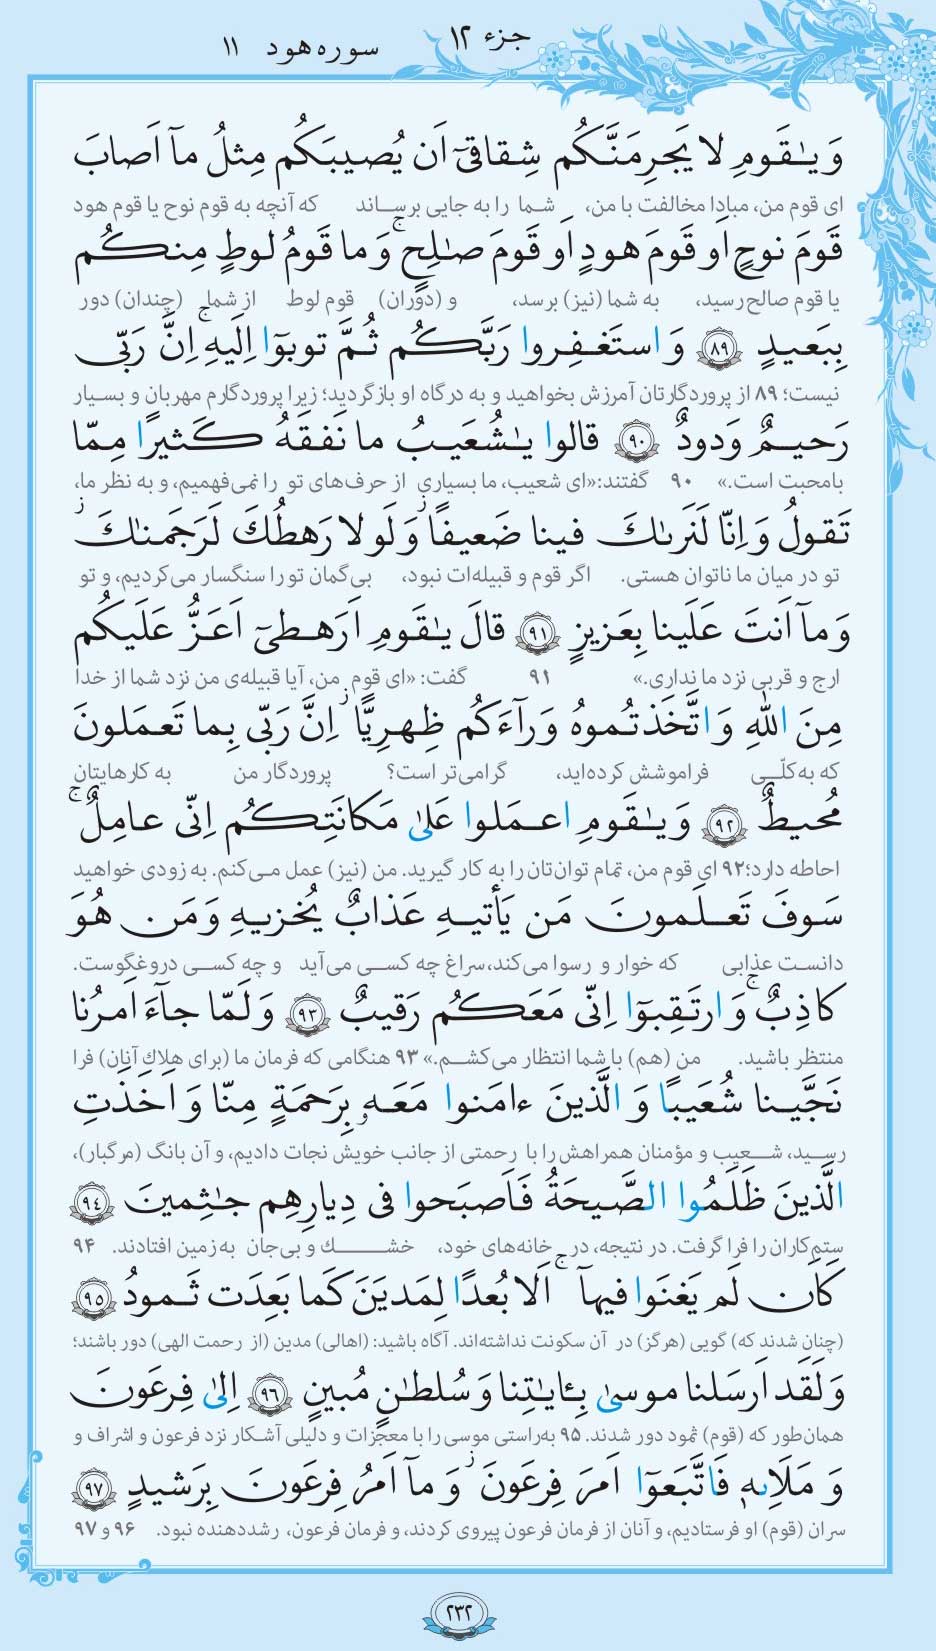 جزء ۱۲
سوره هود ۱۱
وَ يٰقَومِ لا يَجرِمَنَّكُم شِقاقىٓ اَن يُصيبَكُم مِثلُ مآ اَصابَ
ای قوم من، مبادا مخالفت با من، شما را به جایی برساند که آنچه به قوم نوح یا قوم هود
قَومَ نوحٍ اَو قَومَ هودٍ اَو قَومَ صٰلِحٍ ۚ وَ ما قَومُ لوطٍ مِنكُم
یا قوم صالح رسید، به شما (نیز) برسد، و (دوران) قوم لوط از شما (چندان) دور
بِبَعيدٍ ﴿۸۹﴾ وَ استَغفِروا رَبَّكُم ثُمَّ توبوٓا اِلَيهِ ۚ اِنَّ رَبّى
نیست؛ ۸۹ از پروردگارتان آمرزش بخواهید و به درگاه او بازگردید؛ زیرا پروردگارم مهربان و بسیار
رَحيمٌ وَدودٌ ﴿۹۰﴾ قالوا يٰشُعَيبُ ما نَفقَهُ كَثيرًا مِمّا
بامحبت است.» ۹۰ گفتند:«ای شعیب، ما بسیاری از حرف‌های تو را نمی‌فهمیم، و به نظر ما،
تَقولُ وَ اِنّا لَنَرىٰكَ فينا ضَعيفًا ۖ وَ لَو لا رَهطُكَ لَرَجَمنٰكَ ۖ
تو در میان ما ناتوان هستی. اگر قوم و قبیله‌ات نبود، بی‌گمان تو را سنگسار می‌کردیم، و تو
وَ مآ اَنتَ عَلَينا بِعَزيزٍ ﴿۹۱﴾ قالَ يٰقَومِ اَرَهطىٓ اَعَزُّ عَلَيكُم
ارج و قربی نزد ما نداری.» ۹۱ گفت: «ای قوم من، آیا قبیله‌ی من نزد شما از خدا
مِنَ اللّٰهِ وَ اتَّخَذتُموهُ وَرآءَكُم ظِهرِيًّا ۖ اِنَّ رَبّى بِما تَعمَلونَ
که به‌کلّی فراموشش کرده‌اید، گرامی‌تر است؟ پروردگار من به کارهایتان
مُحيطٌ ﴿۹۲﴾ وَ يٰقَومِ اعمَلوا عَلىٰ مَكانَتِكُم اِنّى عامِلٌ ۖ
احاطه دارد؛۹۲ ای قوم من، تمام توان‌تان را به کار گیرید. من (نیز) عمل می‌کنم. به زودی خواهید
سَوفَ تَعلَمونَ مَن يَأتيهِ عَذابٌ يُخزيهِ وَ مَن هُوَ
دانست عذابی که خوار و رسوا می‌کند،سراغ چه کسی می‌آید و چه کسی دروغگوست.
كاذِبٌ ۖ وَ ارتَقِبوٓا اِنّى مَعَكُم رَقيبٌ ﴿۹۳﴾ وَ لَمّا جآءَ اَمرُنا
منتظر باشید. من (هم) با شما انتظار می‌کشم.» ۹۳ هنگامی که فرمان ما (برای هلاك آنان) فرا
نَجَّينا شُعَيبًا وَ الَّذينَ ءامَنوا مَعَهو بِرَحمَةٍ مِنّا وَ اَخَذَتِ
رسید، شعیب و مؤمنان همراهش را با رحمتی از جانب خویش نجات دادیم، و آن بانگ (مرگبار)،
الَّذينَ ظَلَمُوا الصَّيحَةُ فَاَصبَحوا فى دِيارِهِم جٰثِمينَ ﴿۹۴﴾
ستم‌کاران را فرا گرفت. در نتیجه، در خانه‌های خود، خشک و بی‌جان به‌زمین افتادند. ۹۴
كَاَن لَم يَغنَوا فيهآ ۗ اَلا بُعدًا لِمَديَنَ كَما بَعِدَت ثَمودُ ﴿۹۵﴾
(چنان شدند که) گویی (هرگز) در آن سکونت نداشته‌اند. آگاه باشید: (اهالی) مدین (از رحمت الهی) دور باشند؛
وَ لَقَد اَرسَلنا موسىٰ بِـٔايٰتِنا وَ سُلطٰنٍ مُبينٍ ﴿۹۶﴾ اِلىٰ فِرعَونَ
همان‌طور که (قوم) ثمود دور شدند. ۹۵ به‌راستی موسی را با معجزات و دلیلی آشکار نزد فرعون و اشراف و
وَ مَلَا۟يِه۪ فَاتَّبَعوٓا اَمرَ فِرعَونَ ۖ وَ مآ اَمرُ فِرعَونَ بِرَشيدٍ ﴿۹۷﴾
سران (قوم) او فرستادیم، و آنان از فرمان فرعون پیروی کردند، و فرمان فرعون، رشددهنده نبود. ۹۶ و ۹۷
۲۳۲